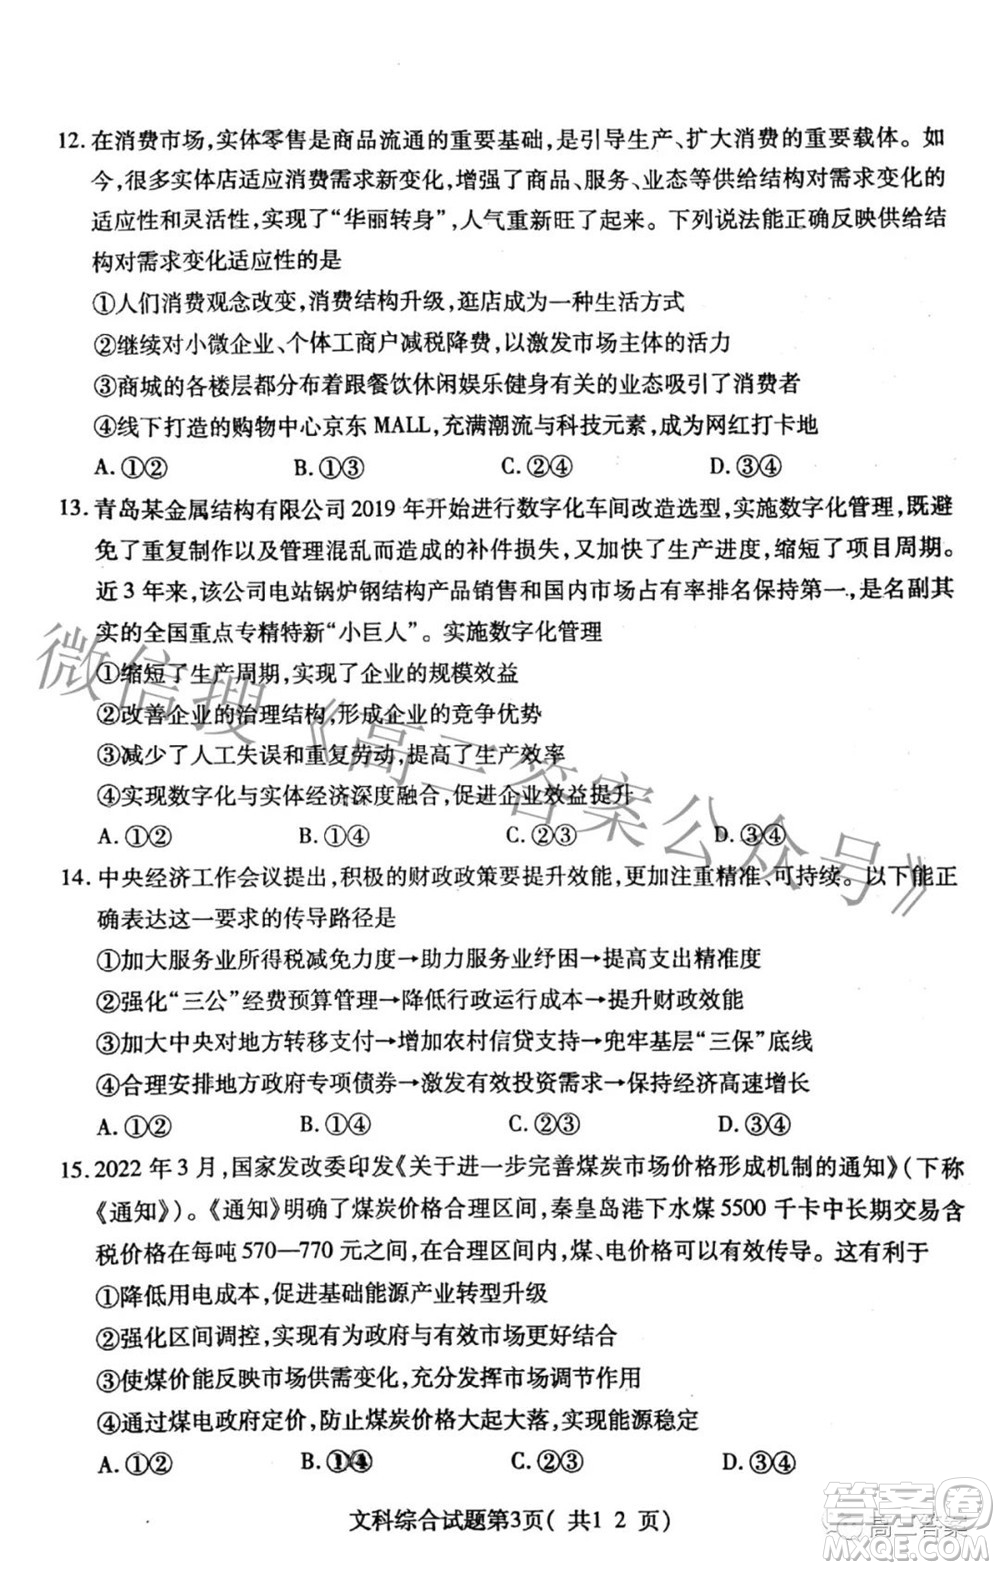 12. 在消费市场,实体零售是商品流通的重要基础,是引导生产、扩大消费的重要载体。如
今,很多实体店适应消费需求新变化,增强了商品、服务、业态等供给结构对需求变化的
适应性和灵活性,实现了“华丽转身”,人气重新旺了起来。下列说法能正确反映供给结
构对需求变化适应性的是
①人们消费观念改变,消费结构升级,逛店成为一种生活方式
②继续对小微企业、个体工商户减税降费,以激发市场的活力
③商城的各楼层都分布着跟餐饮休闲娱乐健身有关的业态吸引了消费者
④线下打造的购物中心京东 MALL,充满潮流与科技元素,成为网红打卡地
A.①② B.①③ C.②④ D.③④
13. 青岛某金属结构有限公司 2019 年开始进行数字化车间改造选型,实施数字化管理,既避
免了重复制作以及管理混乱而造成的补件损失,又加快了生产进度,缩短了项目周期。
近 3 年来,该公司电站锅炉钢结构产品销售和国内市场占有率排名保持第一,是名副其
实的全国重点专精特新“小巨人”。实施数字化管理
①缩短了生产周期,实现了企业的规模效益
②改善企业的治理结构,形成企业的竞争优势
③减少了人工失误和重复劳动,提高了生产效率
④实现数字化与实体经济深度融合,促进企业效益提升
A.①② B.①④ C.②③ D.③④
14. 中央经济工作会议提出,积极的财政政策要提升效能,更加注重精准、可持续。以下能正
确表达这一要求的传导路径是
①加大服务业所得税减免力度→助力服务业纾困→提高政策精准度
②强化“三公”经费预算管理→降低行政运行成本→提升财政效能
③加大中央对地方转移支付→增加农村信贷支持→兜牢基层“三保”底线
④合理安排地方政府专项债券→激发有效投资需求→保持经济高速增长
A.①② B.①④ C.②③ D.③④
15. 2022 年 3 月,国家发改委印发《关于进一步完善煤炭市场价格形成机制的通知》(下称
《通知》)。《通知》明确了煤炭价格合理区间,秦皇岛港下水煤 5500 千卡中长期交易含
税价格在每吨 570—770 元之间,在合理区间内,煤、电价格可以有效传导。这有利于
①降低用电成本,促进基础能源产业转型升级
②强化区间调控,实现有为政府与有效市场更好结合
③使煤价能反映市场供需变化,充分发挥市场调节作用
④通过煤电政府定价,防止煤炭价格大起大落,实现能源稳定
A.①② B.①④ C.②③ D.③④
文科综合试题第3页( 共1 2 页)
微信搜《高三答案公众号》
答案卷
高三答案
MXQE.COM